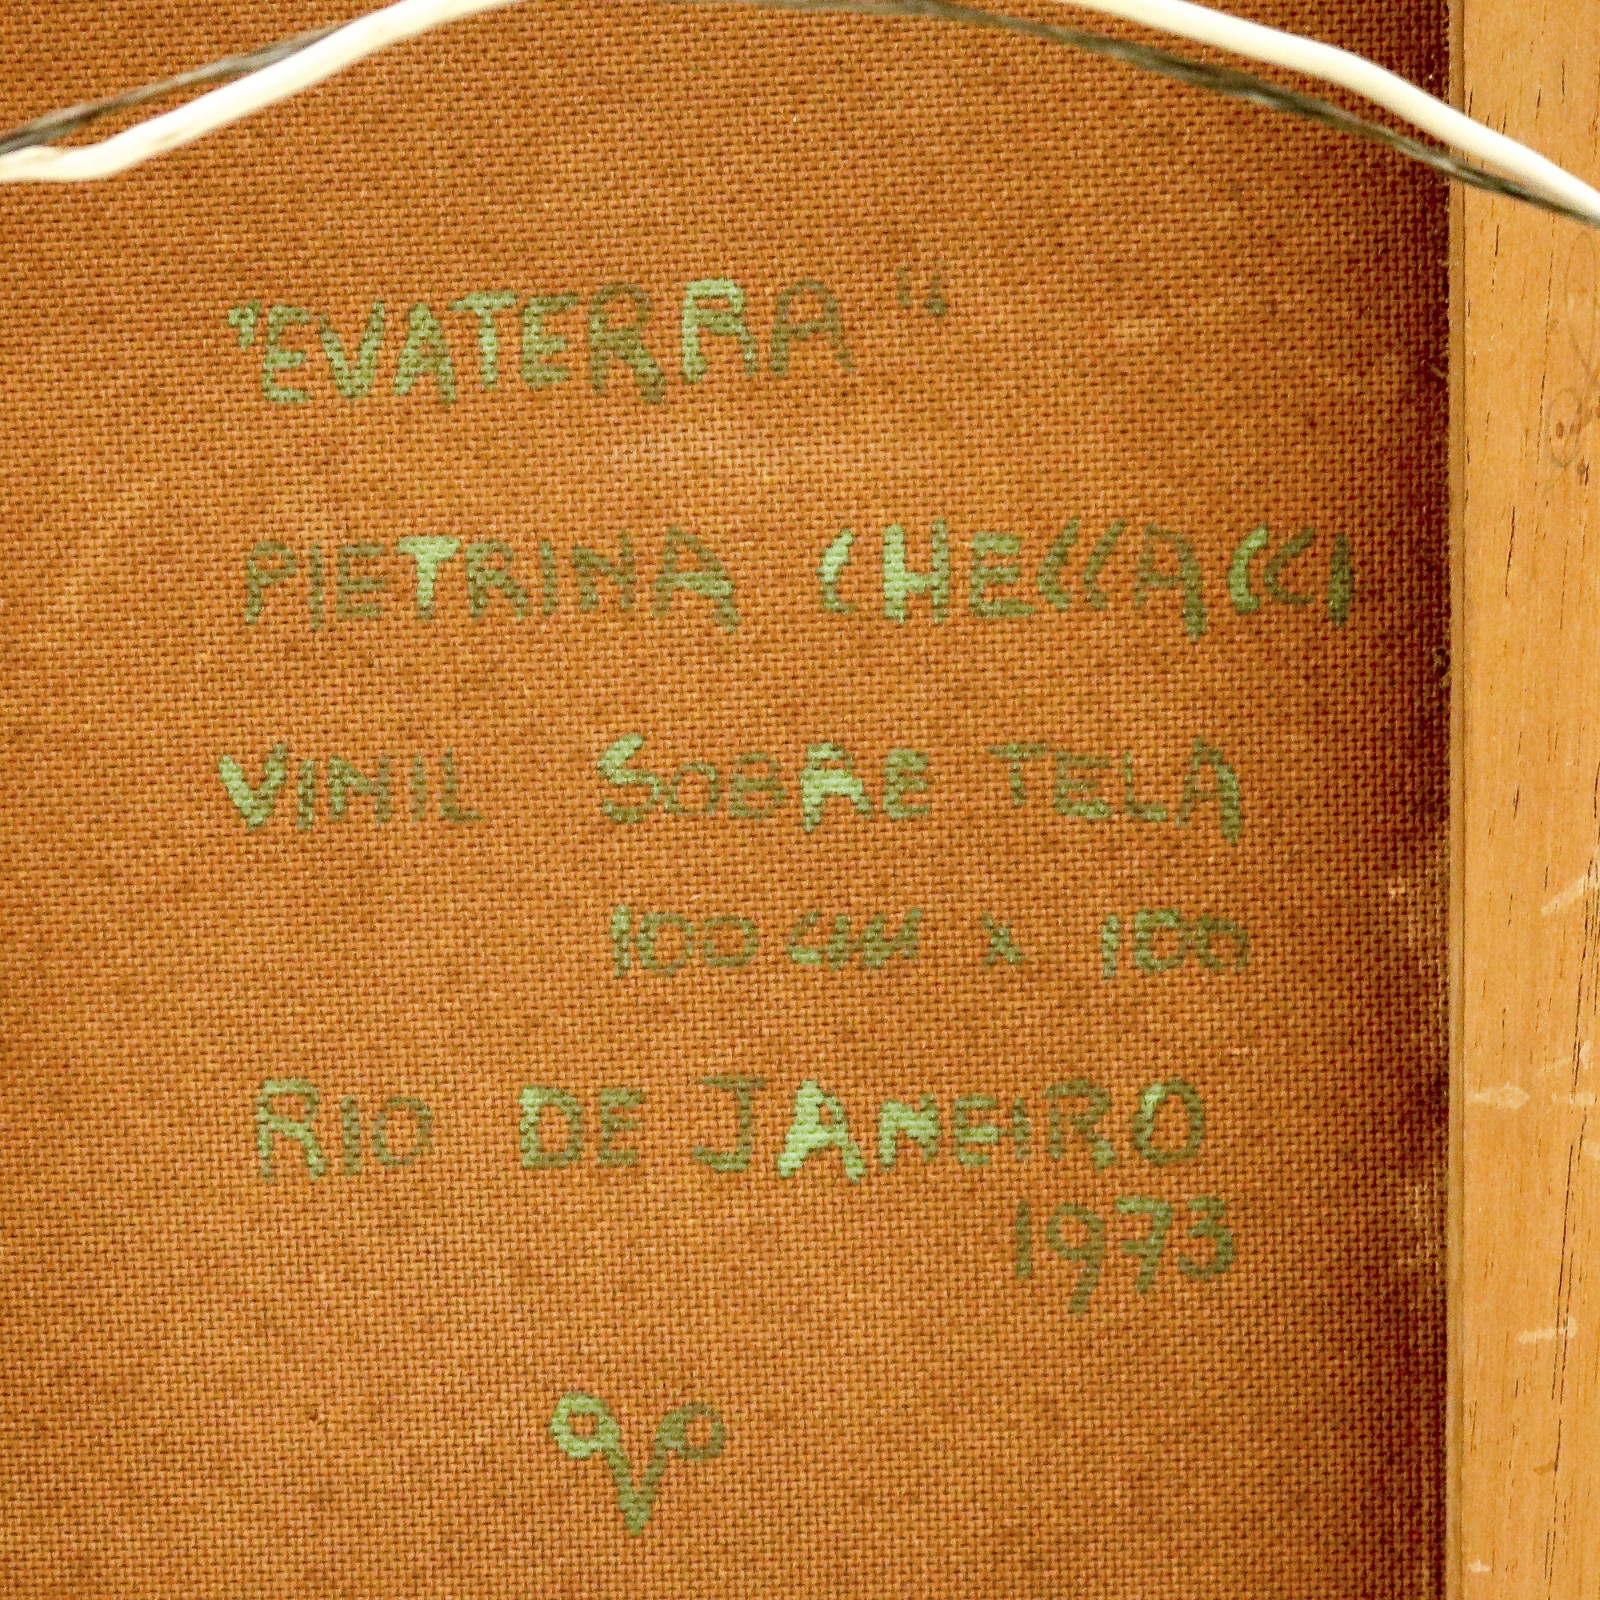 "EVATERRA"
PIETRINA CHECCACCI
VINIL SOBRE TELA
100 cm x 100
RIO DE JANEIRO
1973